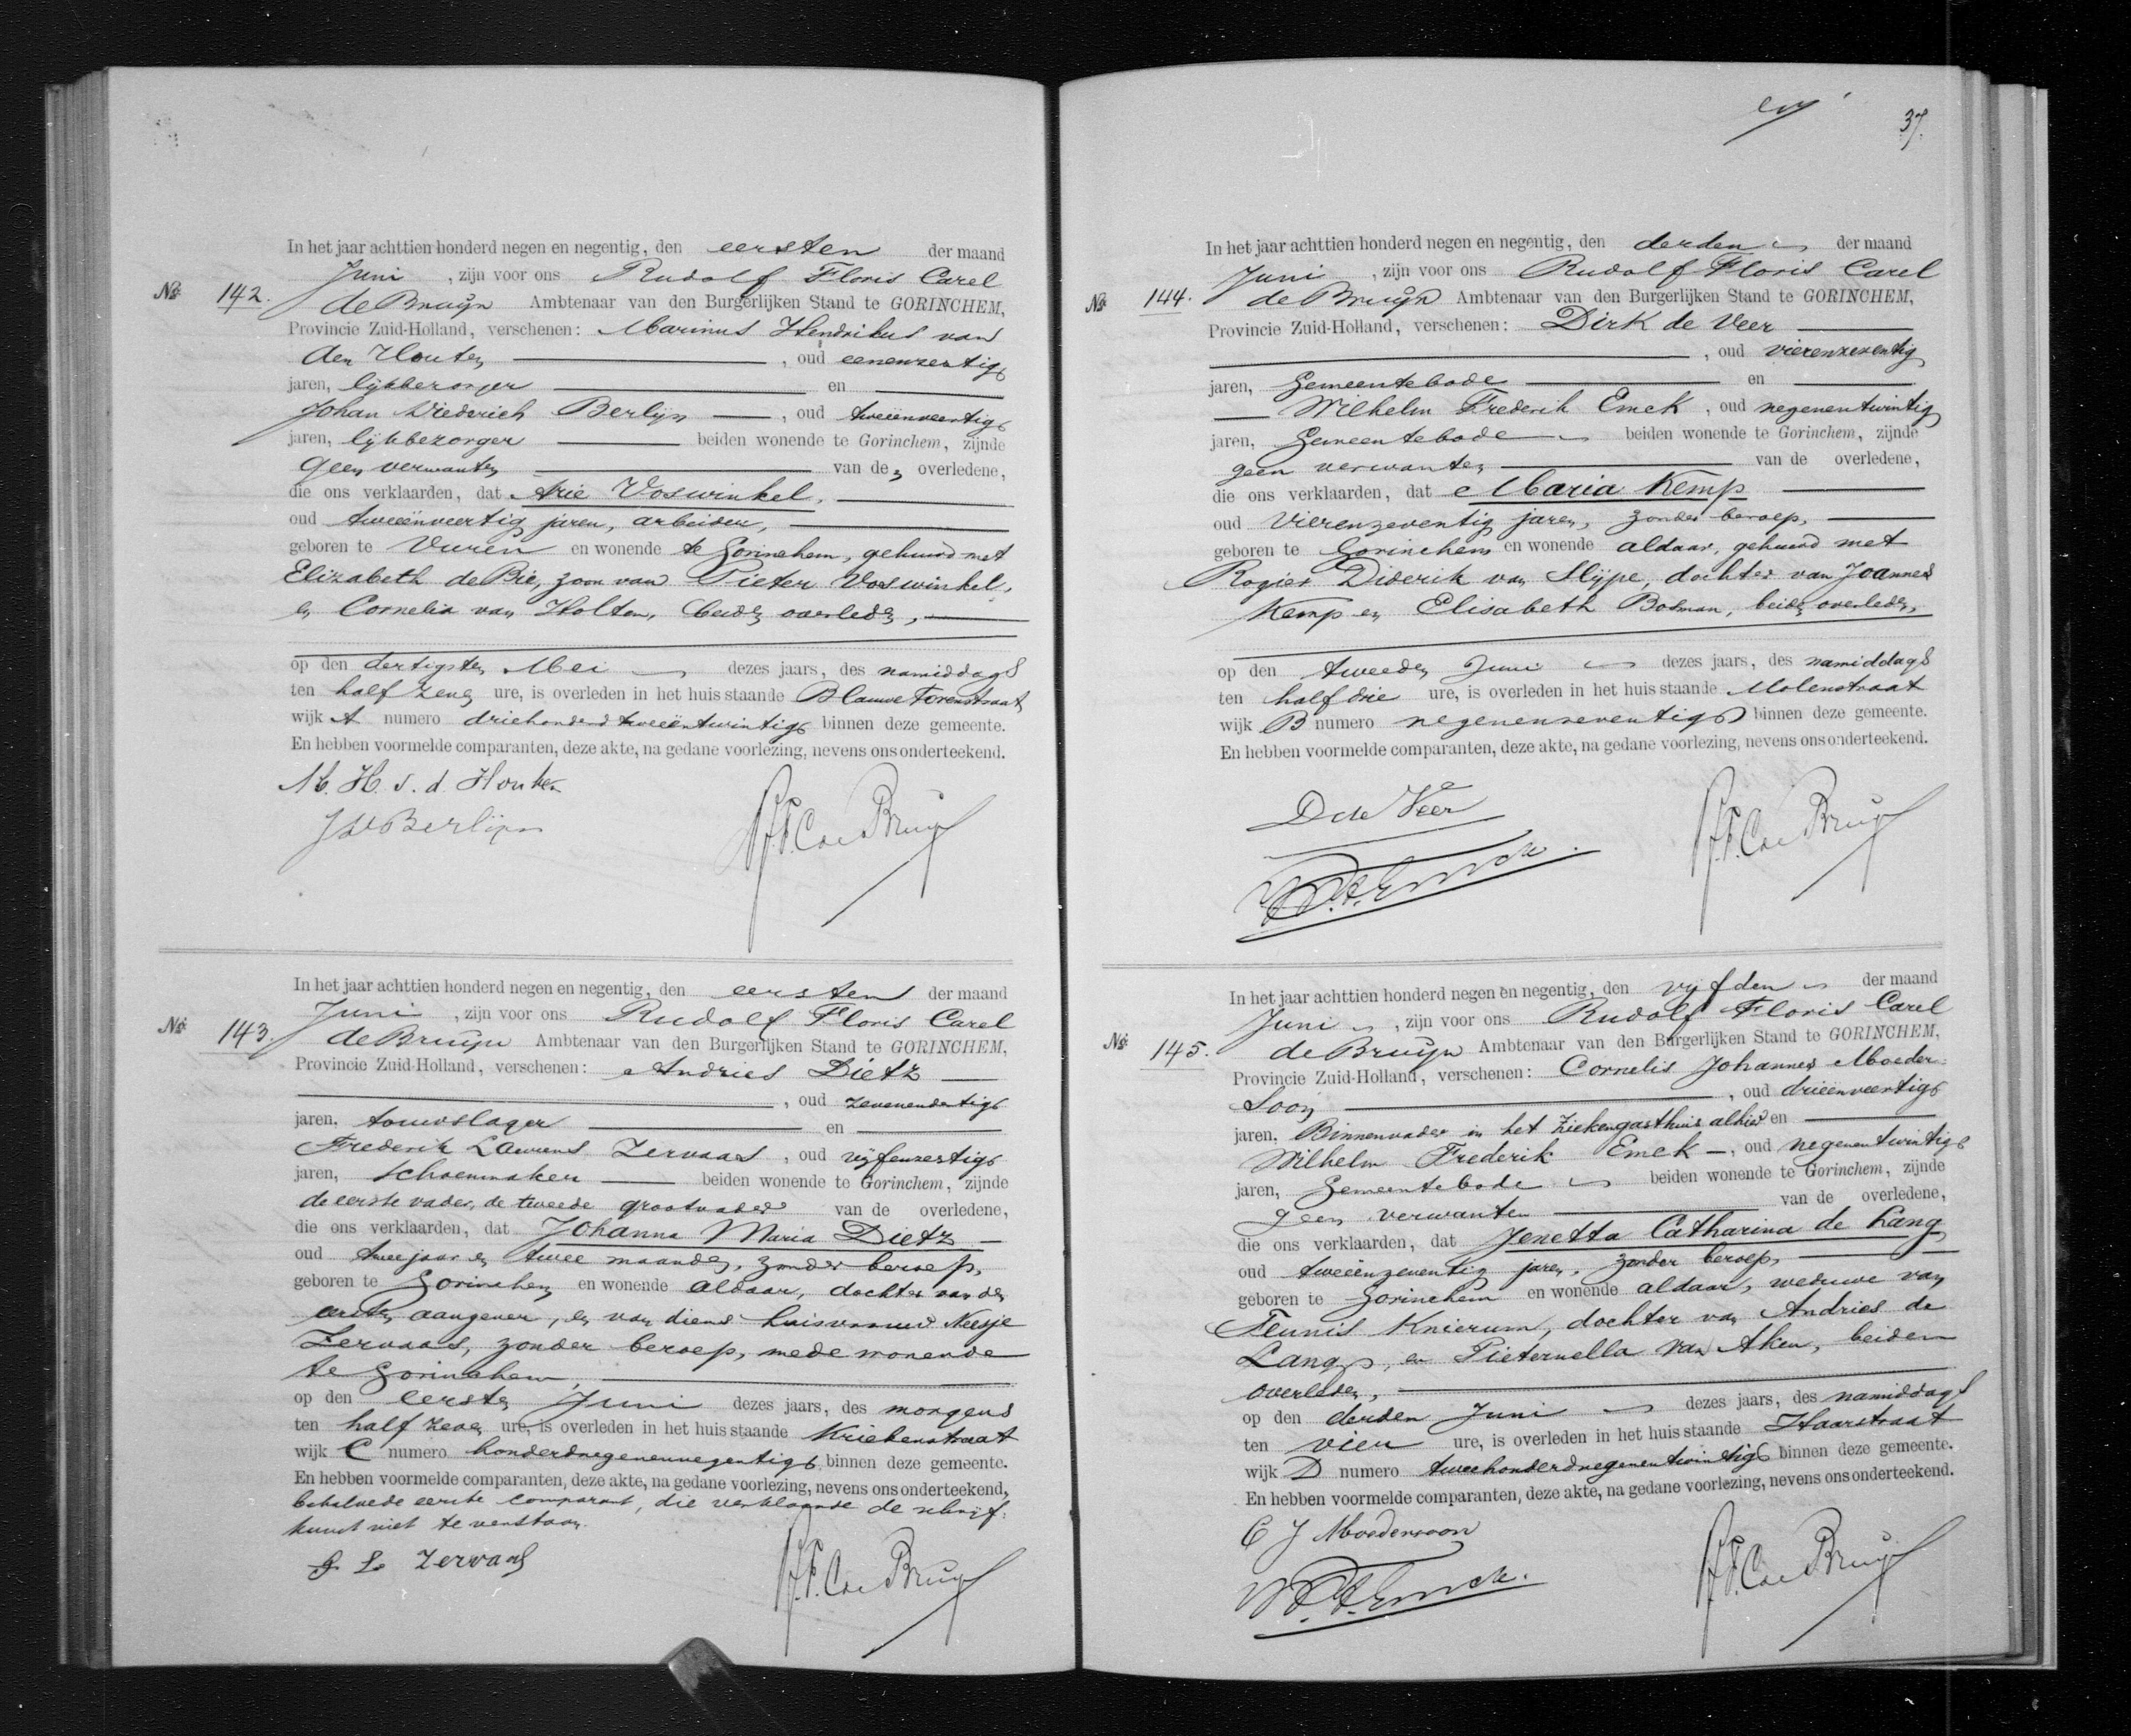 In het jaar achttien honderd negen en negentig, den eersten der maand
Juni, zijn voor ons Rudolf Floris Carel
No. 142. de Bruijn Ambtenaar van den Burgerlijken Stand te GORINCHEM,
Provincie Zuid-Holland, verschenen: Marinus Hendrikus van
den Houten, oud eenenzestig
jaren, lijkbezorger en
Johan Diederich Berlijn, oud tweeënveertig
jaren, lijkbezorger beiden wonende te Gorinchem, zijnde
geen verwanten van den overledene,
die ons verklaarden, dat Arie Voswinkel,
oud tweeënveertig jaren, arbeider,
geboren te Vuren en wonende te Gorinchem, gehuwd met
Elizabeth de Bie, zoon van Pieter Voswinkel,
en Cornelia van Holten, beiden overleden,
op den dertigsten Mei dezes jaars, des namiddags
ten half zeven ure, is overleden in het huis staande Blauwe Torenstraat
wijk A numero driehonderd tweeëntwintig binnen deze gemeente.
En hebben voormelde comparanten, deze akte, na gedane voorlezing, nevens ons onderteekend.
M. H. v. d. Houten
J D Berlijn
R.F.C. de Bruijn
In het jaar achttien honderd negen en negentig, den eersten der maand
Juni, zijn voor ons Rudolf Floris Carel
No. 143. de Bruijn Ambtenaar van den Burgerlijken Stand te GORINCHEM,
Provincie Zuid-Holland, verschenen: Andries Dietz
, oud zevenendertig
jaren, touwslager en
Frederik Laurens Zervaas, oud vijfenzestig
jaren, schoenmaker beiden wonende te Gorinchem, zijnde
de eerste vader, de tweede grootvader van de overledene,
die ons verklaarden, dat Johanna Maria Dietz
oud twee jaar en twee maanden, zonder beroep,
geboren te Gorinchem en wonende aldaar, dochter van den
eersten aangever, en van diens huisvrouw Neesje
Zervaas, zonder beroep, mede wonende
te Gorinchem,
op den eersten Juni dezes jaars, des morgens
ten half zeven ure, is overleden in het huis staande Kriekenstraat
wijk C numero honderdnegenennegentig binnen deze gemeente.
En hebben voormelde comparanten, deze akte, na gedane voorlezing, nevens ons onderteekend,
behalve de eerste comparant, die verklaarde de schrijf-
kunst niet te verstaan.
F. L. Zervaas
R.F.C. de Bruijn
37.
In het jaar achttien honderd negen en negentig, den derden der maand
Juni, zijn voor ons Rudolf Floris Carel
No. 144. de Bruijn Ambtenaar van den Burgerlijken Stand te GORINCHEM,
Provincie Zuid-Holland, verschenen: Dirk de Veer
, oud vierenzeventig
jaren, Gemeentebode en
Wilhelm Frederik Emck, oud negenentwintig
jaren, Gemeentebode beiden wonende te Gorinchem, zijnde
geen verwanten van de overledene,
die ons verklaarden, dat Maria Kemp
oud vierenzeventig jaren, zonder beroep,
geboren te Gorinchem en wonende aldaar, gehuwd met
Rogier Diderik van Slijpe, dochter van Joannes
Kemp en Elisabeth Bosman, beiden overleden,
op den tweeden Juni dezes jaars, des namiddags
ten half drie ure, is overleden in het huis staande Molenstraat
wijk B numero negenenzeventig binnen deze gemeente.
En hebben voormelde comparanten, deze akte, na gedane voorlezing, nevens ons onderteekend.
D de Veer
W.F. Emck.
R.F.C. de Bruijn
In het jaar achttien honderd negen en negentig, den vijfden der maand
Juni, zijn voor ons Rudolf Floris Carel
No. 145. de Bruijn Ambtenaar van den Burgerlijken Stand te GORINCHEM,
Provincie Zuid-Holland, verschenen: Cornelis Johannes Moeder-
soon, oud drieenveertig
jaren, Binnenvader in het Ziekengasthuis alhier en
Wilhelm Frederik Emck, oud negenentwintig
jaren, Gemeentebode beiden wonende te Gorinchem, zijnde
geen verwanten van de overledene,
die ons verklaarden, dat Jenetta Catharina de Lang
oud tweeënzeventig jaren, zonder beroep,
geboren te Gorinchem en wonende aldaar, weduwe van
Teunis Knierum, dochter van Andries de
Lang, en Pieternella van Aken, beiden
overleden,
op den derden Juni dezes jaars, des namiddags
ten vier ure, is overleden in het huis staande Haarstraat
wijk D numero tweehonderdnegenentwintig binnen deze gemeente.
En hebben voormelde comparanten, deze akte, na gedane voorlezing, nevens ons onderteekend.
C J Moedersoon
W.F. Emck.
R.F.C. de Bruijn